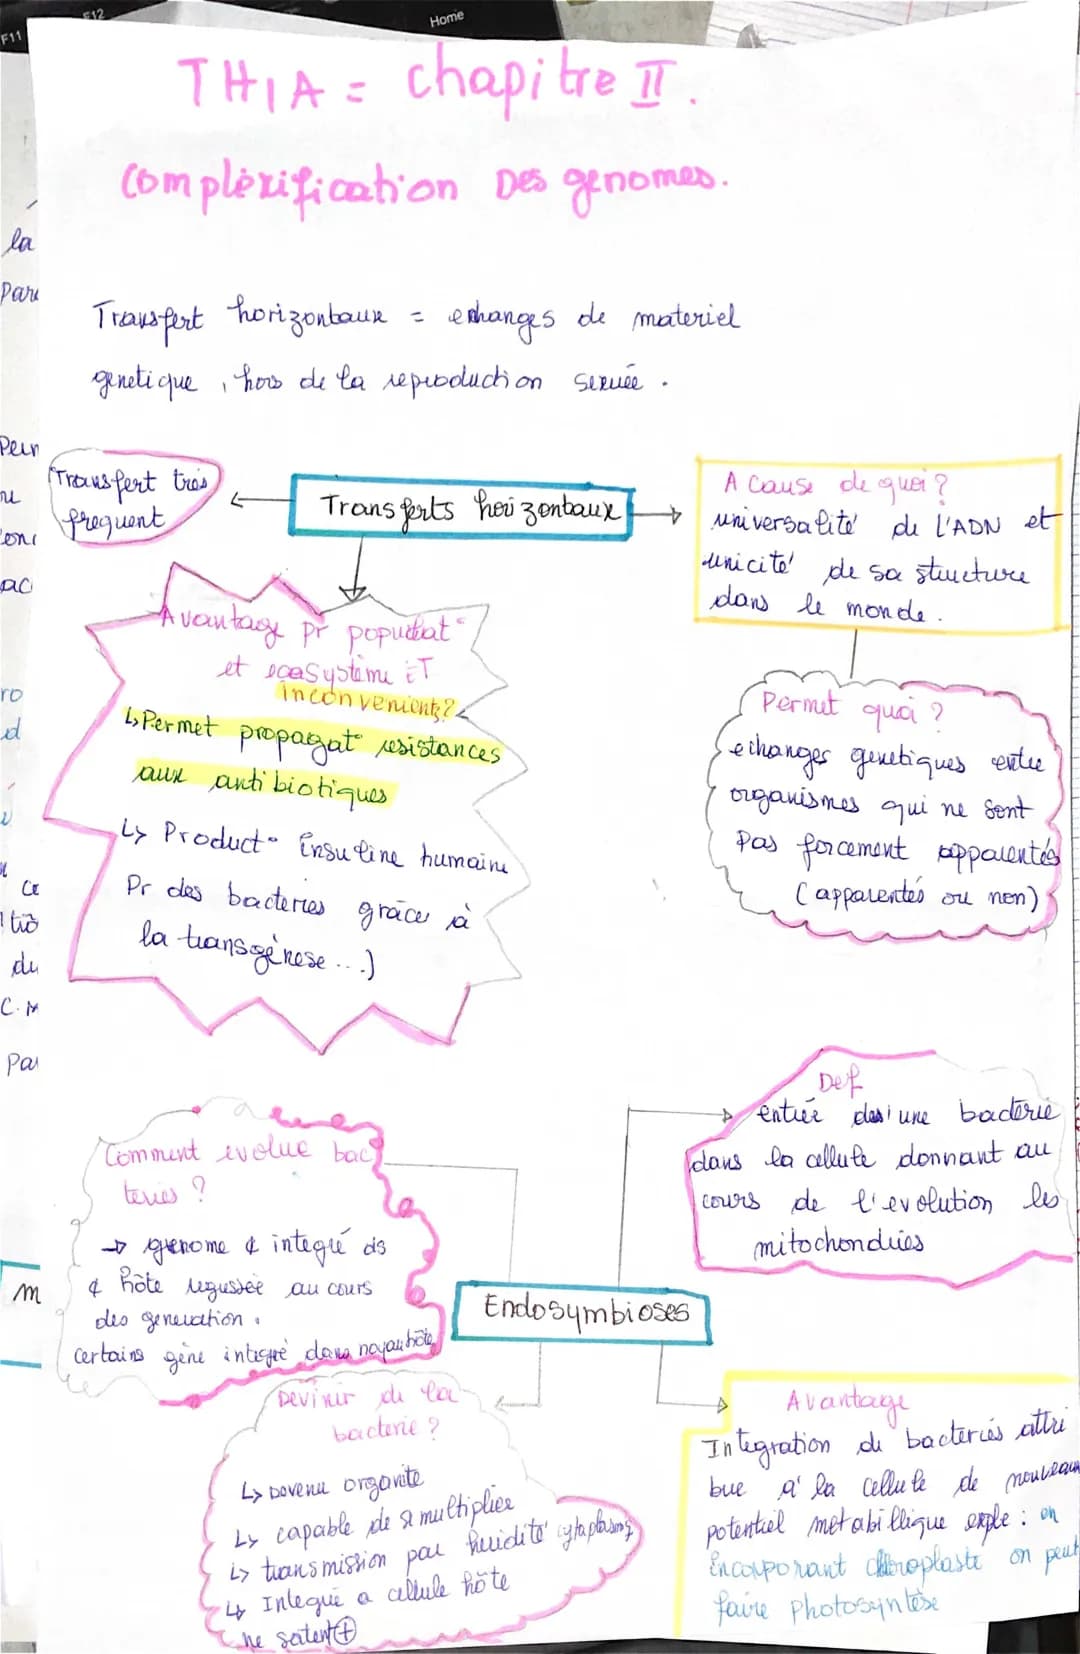 F11
F12
Home
TH1A = chapitre II.
Complèxification Des genomes.
la
Transfert horizontaux = echanges de materiel
genetique, hors de la reproduction sexuée.
Transfert très
frequent
Transferts horizontaux
A cause de quoi ?
universalité de L'ADN et
unicité de sa structure
dans le monde.
Avantage pr populat°
et ecosystème ET
inconvenients ?
↳ Permet propagat° resistances
aux antibiotiques
↳ Product° insuline humaine
Pr des bacteries grâce à
la transgénese...)
Permet quoi ?
echanges genetiques entre
organismes qui ne sont
Pas forcement apparentés
(apparentés ou non)
Def
entrée une bacterie
dans la cellule donnant au
cours de l'evolution les
mitochondries
Comment evolue bac
teries ?
→ genome & integré ds
& hôte regussée au cours
des generation.
certains gène integré dans noyau hôte
Endosymbioses
Devinir de la
bacterie ?
↳ Devenu organite
↳ capable de se multiplier
↳ transmission par heridité cytoplasmq
↳ Integré a cellule hôte
ne
Avantage
Integration de bacteries attri
bue a' la cellule de nouveau
potentiel metabillique exple : en
incorporant chloroplaste on peut
faire Photosyntèse